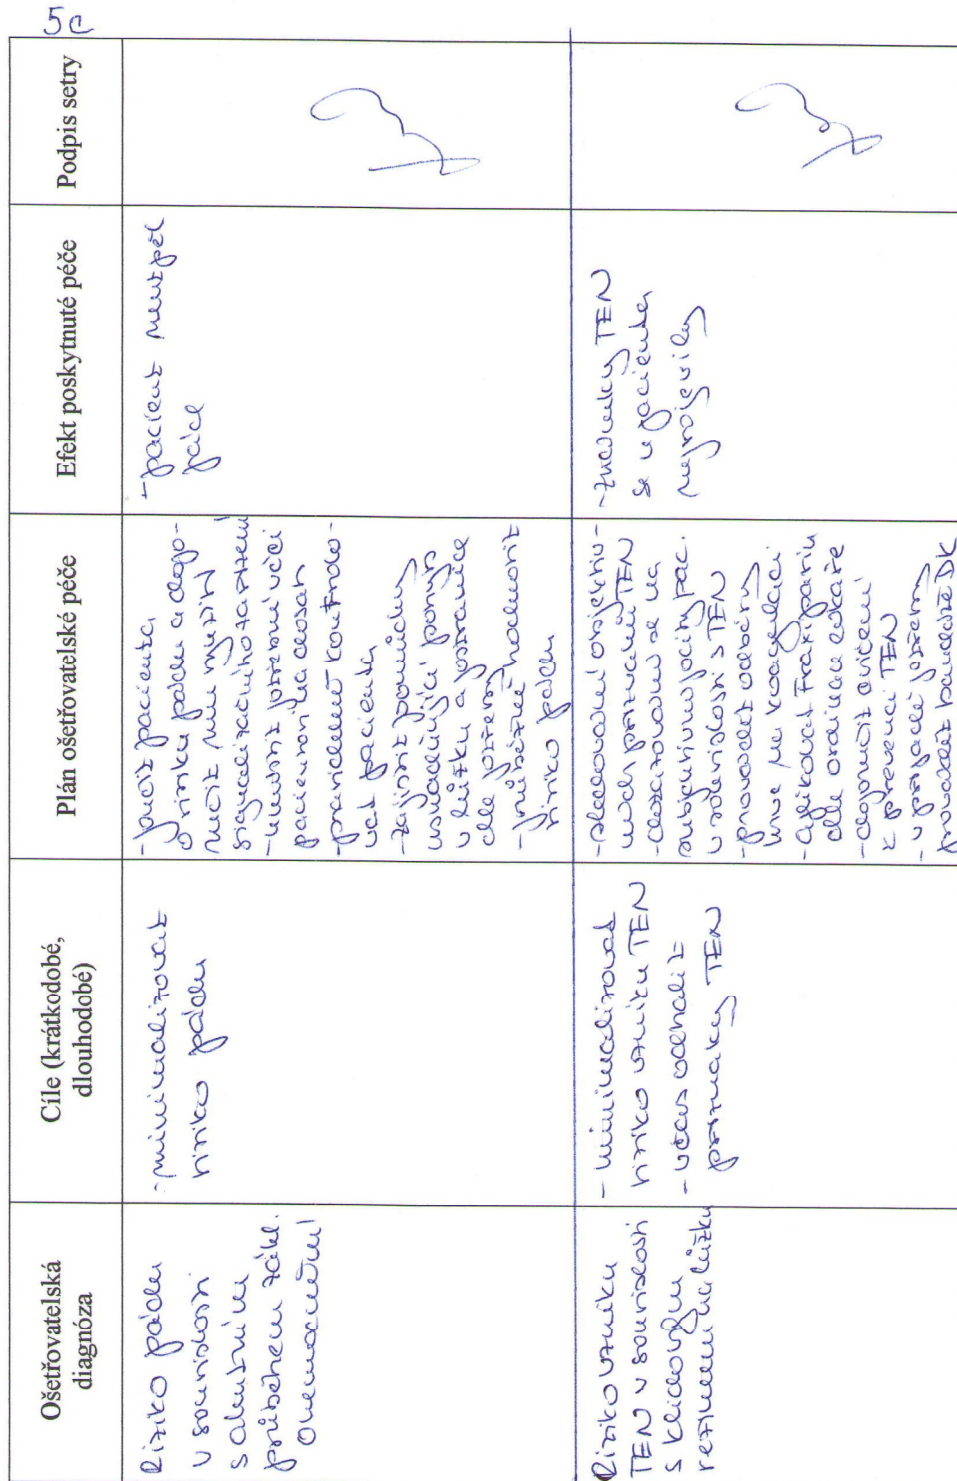 5c
Ošetřovatelská
diagnóza
Cíle (krátkodobé,
dlouhodobé)
Plán ošetřovatelské péče
Efekt poskytnuté péče
Podpis setry
Riziko pádu
v souvislosti
s akutním
průběhem zákl.
onemocnění
- minimalizovat
riziko pádu
- poučit pacienta
o riziku pádu a dopo-
ručit mu využití
signalizačního zařízení
- umístit potřebné věci
pacientovi na dosah
- pravidelně kontrolo
vat pacienta
- zajistit pomůcky
usnadňující pohyb
v lůžku a postranice
dle potřeby
- průběžně hodnotit
riziko pádu
- pacient neutrpěl
pád
Riziko vzniku
TEN v souvislosti
s klidovým
režimem na lůžku
- minimalizovat
riziko vzniku TEN
- včas odhalit
příznaky TEN
- sledování objektiv-
ních příznaků TEN
- dotazování se na
subjektivní pocity pac.
v souvislosti s TEN
- provádět odběry
krve na koagulaci
- aplikovat Fraxiparin
dle ordinace lékaře
- doporučit cvičení
k prevenci TEN
- v případě potřeby
provádět bandáže DK
- známky TEN
se u pacienta
neprojevily